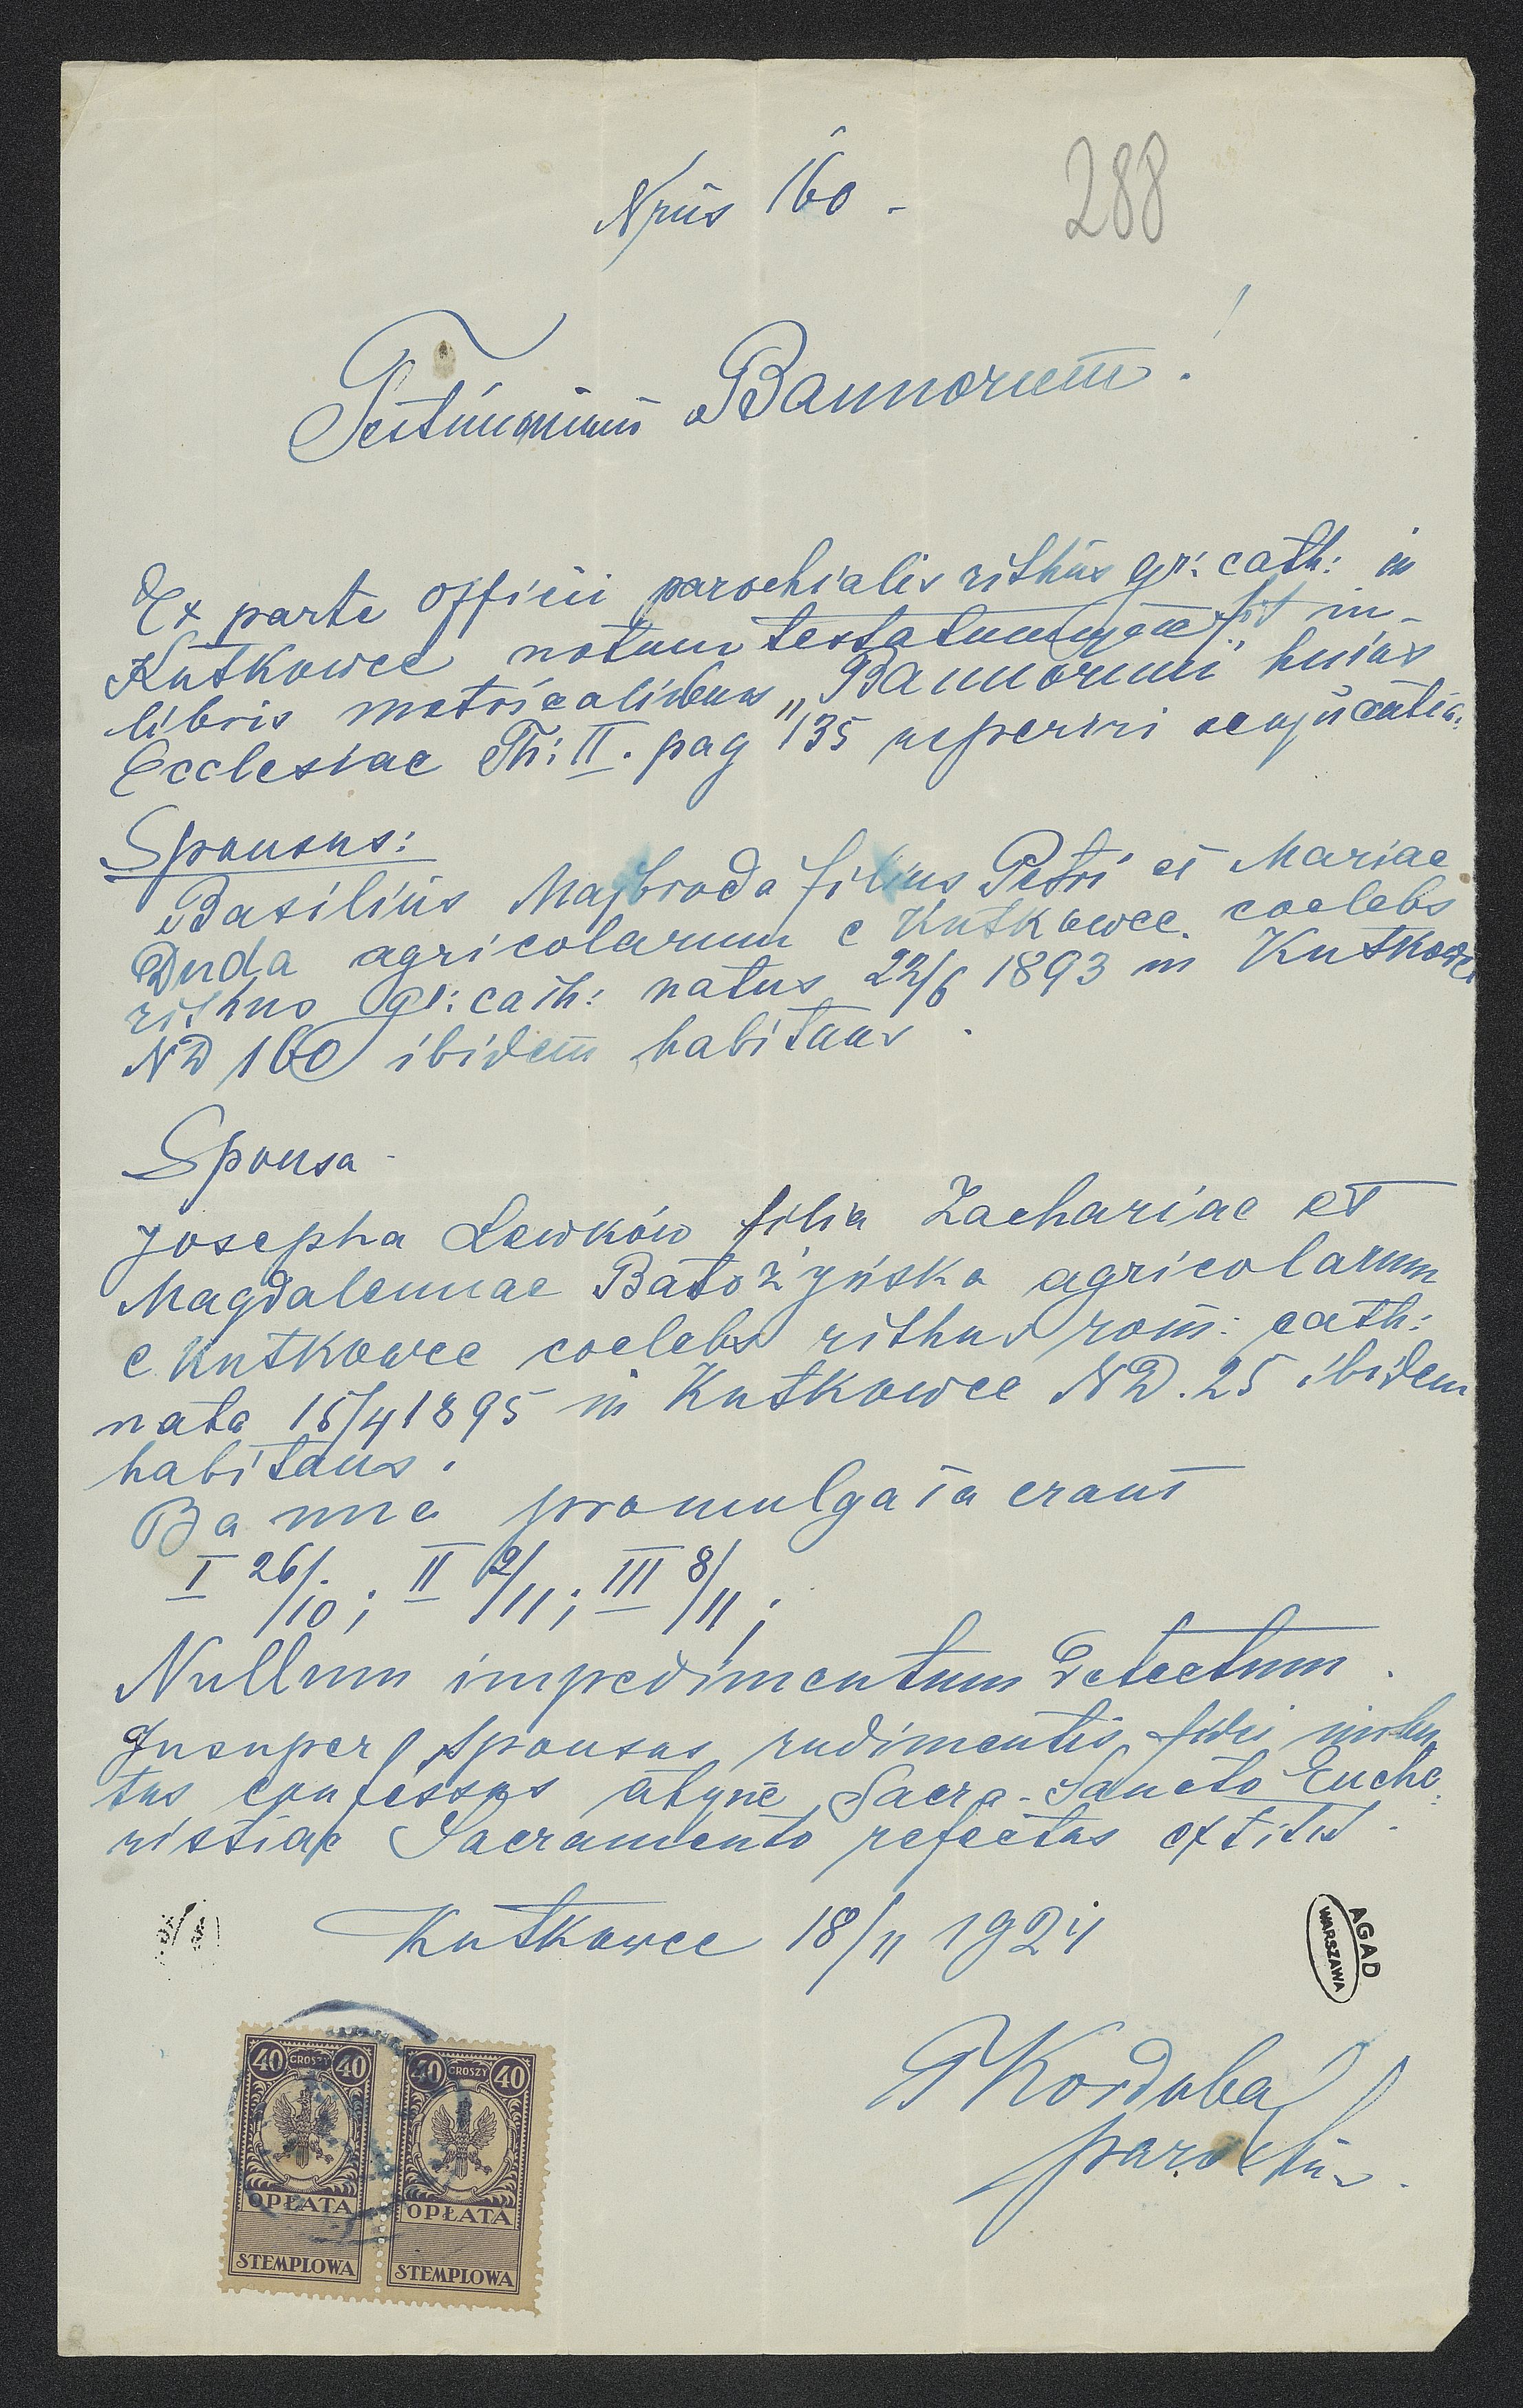 Nrus 160 -
288
Testimonium Bannorum!
Ex parte officii parochialis rithus gr: cath: in
Kutkowce notum testatumque fit in
libris metricalibus „Bannorum" huius
Ecclesiae Th: II. pag 135 reperiri sequentia:
Sponsus:
Basilius Majbroda filius Petri et Mariae
Duda agricolarum e Kutkowce. coelebs
rithus gr: cath: natus 22/6 1893 in Kutkowce
ND 160 ibidem habitans.
Sponsa -
Josepha Lewków filia Zachariae et
Magdalennae Batożyńska agricolarum
e Kutkowce coelebs rithus rom: cath:
nata 15/4 1895 in Kutkowce ND. 25 ibidem
habitans.
Banna promulgata erant
I 26/10; II 2/11; III 8/11;
Nullum impedimentum detectum.
Insuper sponsus rudimentis fidei imbu
tus confessus atque Sacro-Sancto Euche
ristiae Sacramento refectus extitit.
Kutkowce 18/11 1924
AGAD
WARSZAWA
Korduba
parochus.
40 GROSZY 40
OPŁATA
STEMPLOWA
40 GROSZY 40
OPŁATA
STEMPLOWA